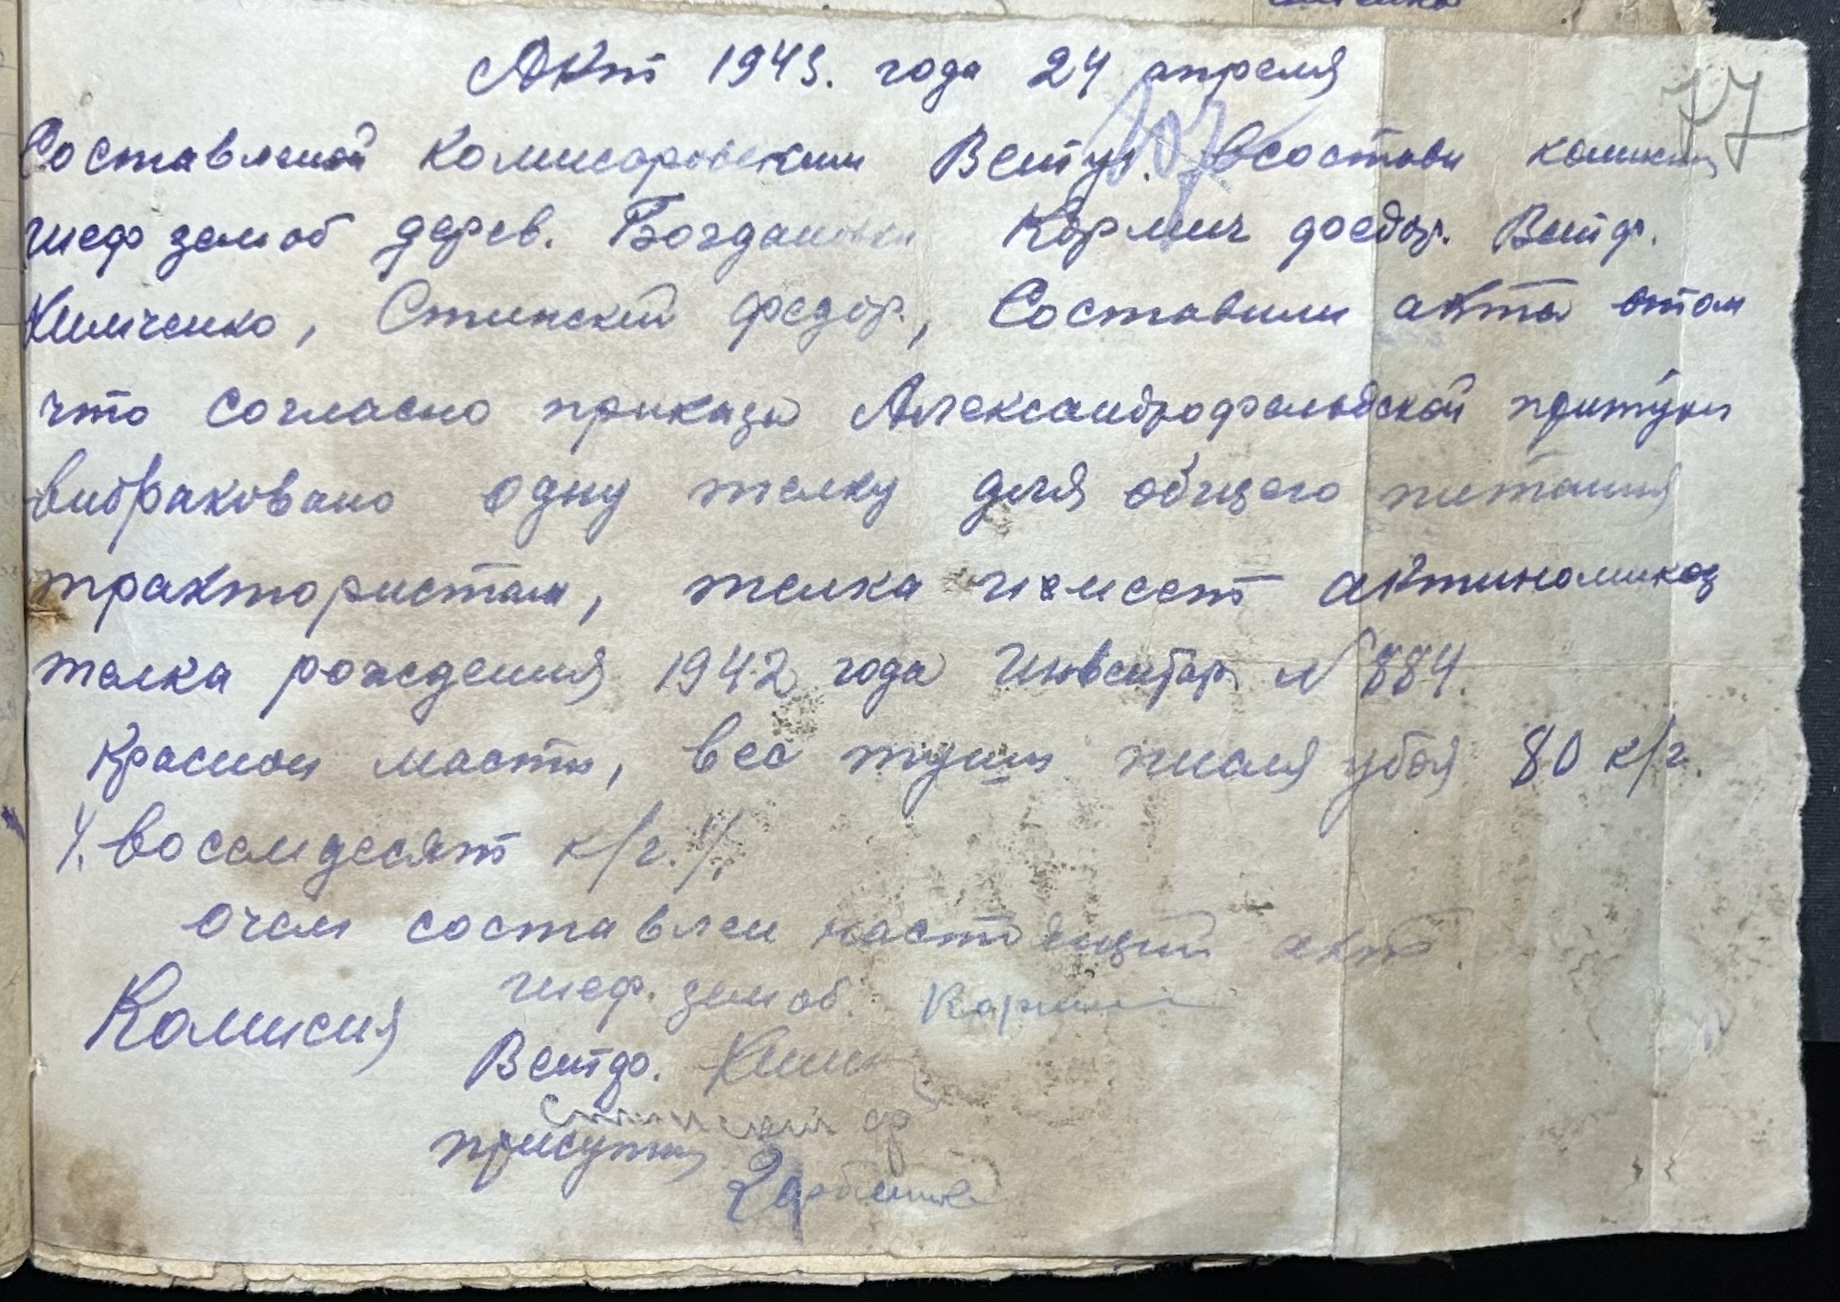 Акт 1943. года 24 апреля
77
Составленой Комисаровским Ветуч. всостави комисии
шеф земоб дерев. Богдановки Кормич федор. Ветф.
Химченко, Стинский федор., Составили акта отом
что согласно приказа Александрофельдской
вибраковано одну телку для общего питания
трактористам, телка имеет актиномикоз
телка рождения 1942 года Инвентар № 884.
Красной масти, вес туши после убоя 80 к/г.
/. восемдесят к/г. /.
очем составлен настоящий акт.
шеф. земоб.
Комисия
Ветф.
Стинский ф